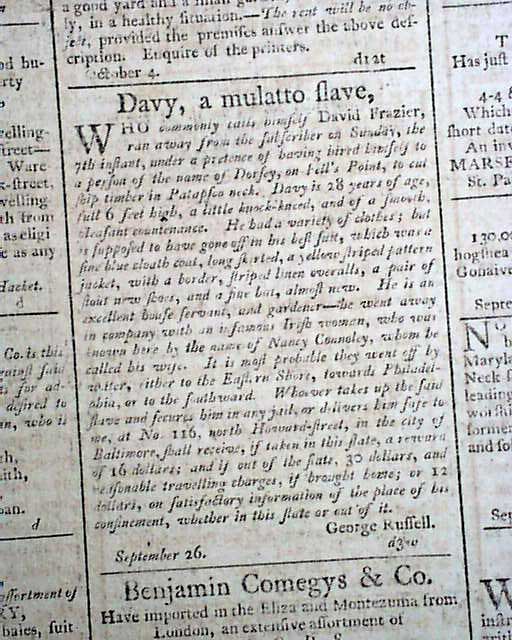 a good yard and a small
ly, in a healthy situation.—The rent will be no ob-
ject, provided the premises answer the above des-
cription. Enquire of the printers.
October 4. d12t
Davy, a mulatto slave,
WHO commonly calls himself David Frazier,
ran away from the subscriber on Sunday, the
7th instant, under a pretence of having hired himself to
a person of the name of Dorsey, on Fell's Point, to cut
ship timber in Patapsco neck. Davy is 28 years of age,
full 6 feet high, a little knock-kneed, and of a smooth,
pleasant countenance. He had a variety of clothes; but
is supposed to have gone off in his best suit, which was a
fine blue cloath coat, long skirted, a yellow striped pattern
jacket, with a border, striped linen overalls, a pair of
stout new shoes, and a fine hat, almost new. He is an
excellent house servant, and gardener—he went away
in company with an infamous Irish woman, who was
known here by the name of Nancy Connoley, whom he
called his wife. It is most probable they went off by
water, either to the Eastern Shore, towards Philadel-
phia, or to the southward. Whoever takes up the said
slave and secures him in any jail, or delivers him safe to
me, at No. 116, north Howard-street, in the city of
Baltimore, shall receive, if taken in this state, a reward
of 16 dollars; and if out of the state, 30 dollars, and
reasonable travelling charges, if brought home; or 12
dollars, on satisfactory information of the place of his
confinement, whether in this state or out of it.
George Russell.
September 26. d3w
Benjamin Comegys & Co.
Have imported in the Eliza and Montezuma from
London, an extensive assortment of
velling-
street—
Ware
k-street,
welling
th from
as eligi
c as any
Hacket.
d
Co. is this
for ad-
desired to
who is
d
assortment of
baies, suit
T
Has just
4-4
Which
short date
An inv
MARSE
St. Pa
130,00
hogshea
Gonaive
Septe
No
Maryla
Neck
leading
former
and fol
Sep
W